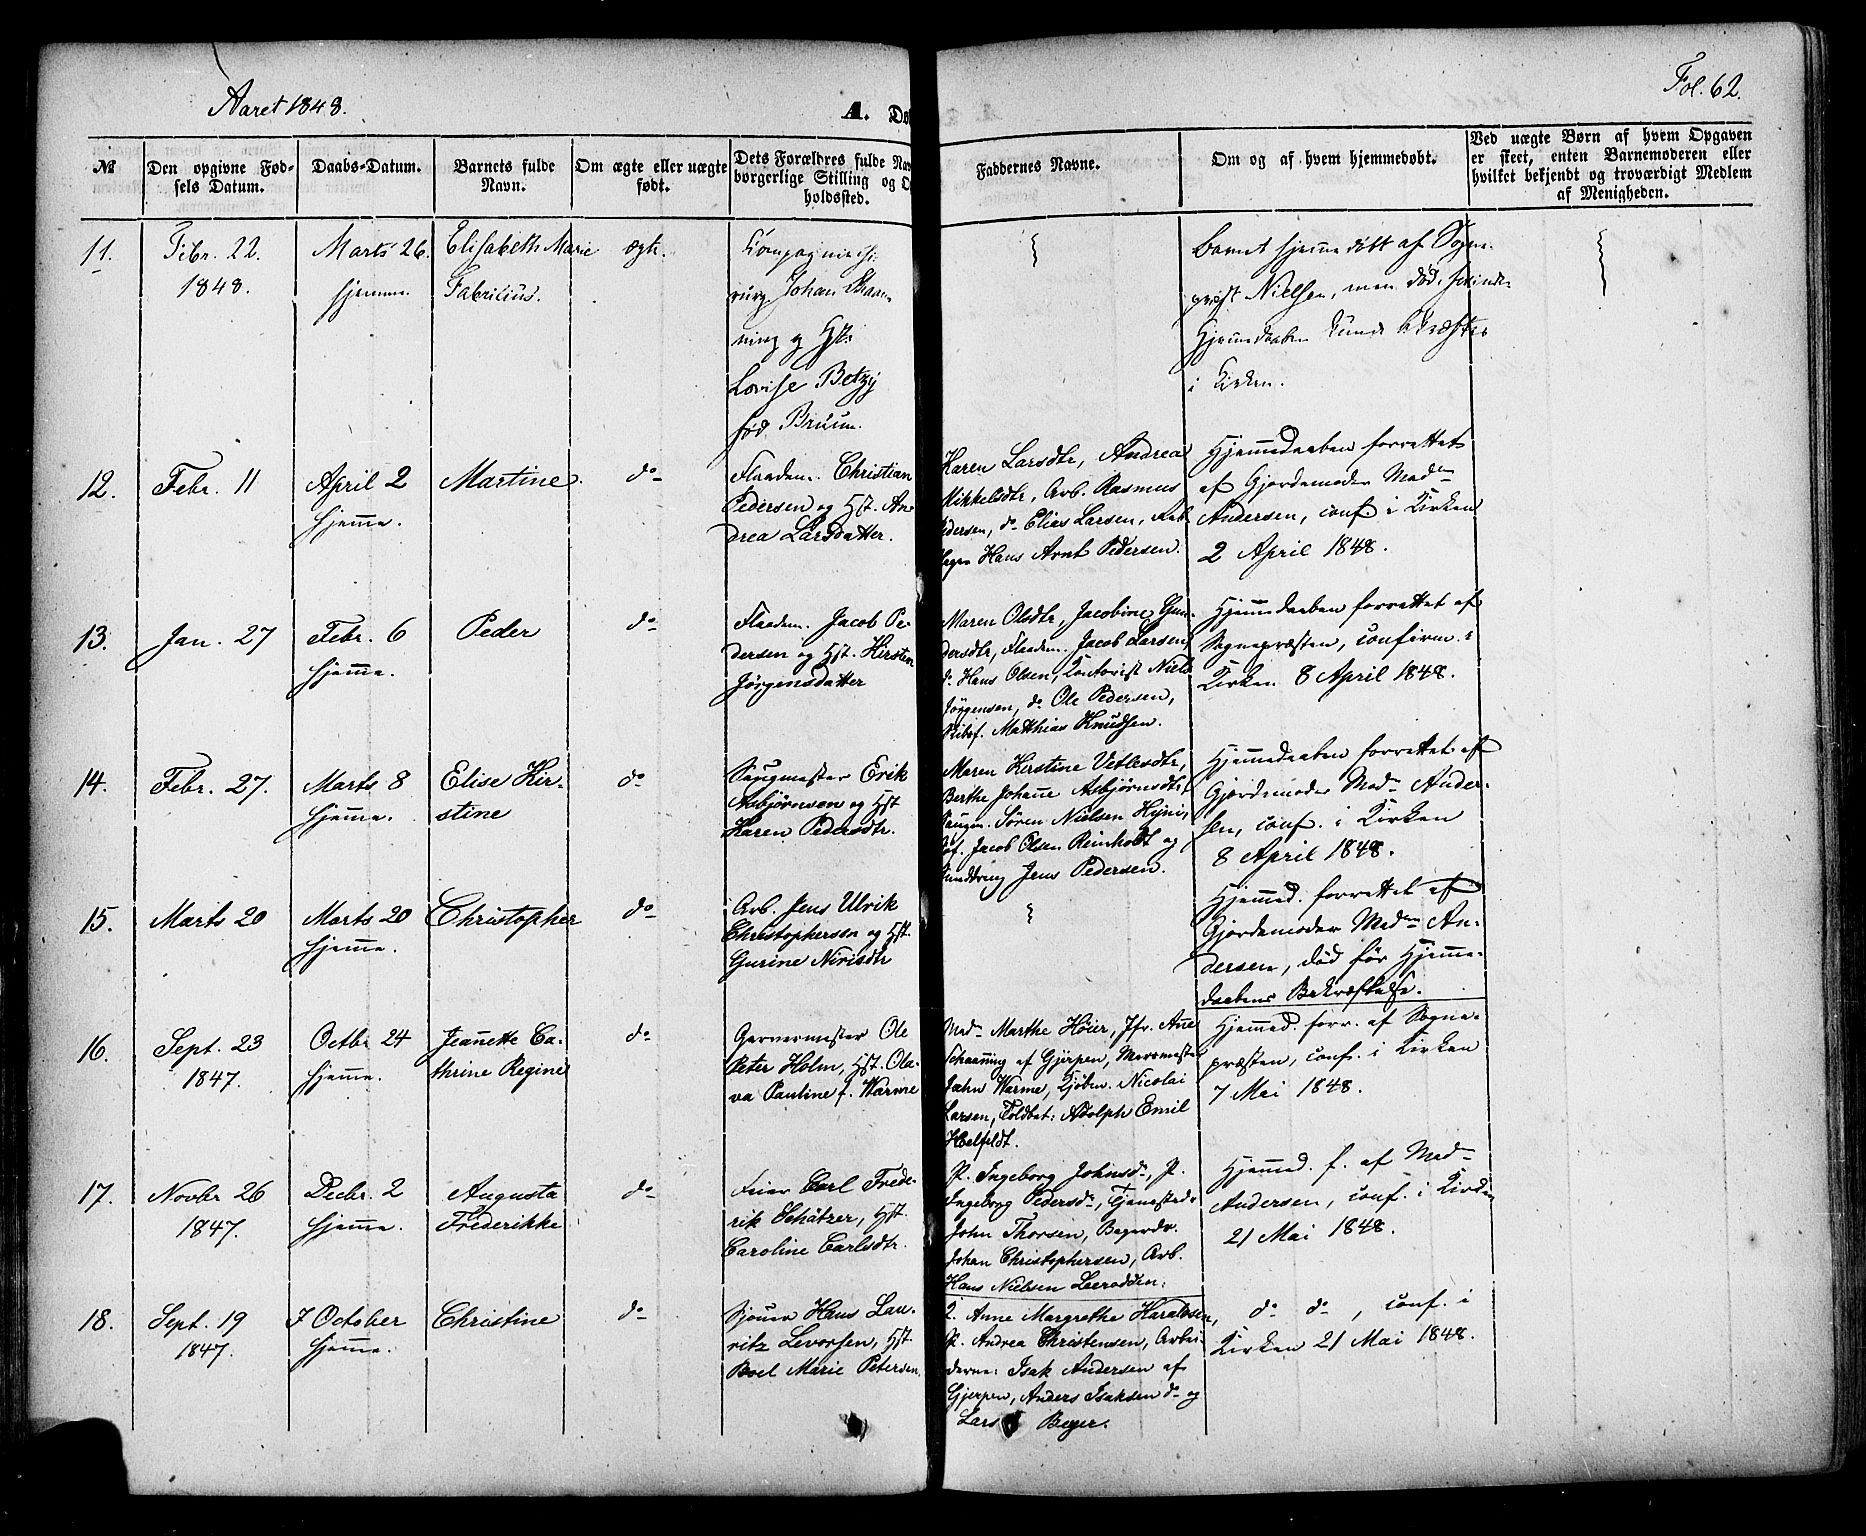 Aaret 1848.
A. Dø
Fol. 62.
№
Den opgivne Fød-
sels Datum.
Daabs-Datum.
Barnets fulde
Navn.
Om ægte eller uægte
født.
Dets Forældres fulde Nav
borgerlige Stilling og O
holdssted.
Faddernes Navne.
Om og af hvem hjemmedøbt.
Ved uægte Børn af hvem Opgaven
er skeet, enten Barnemoderen eller
hvilket bekjendt og troværdigt Medlem
af Menigheden.
11.
Febr. 22.
1848.
Marts 26.
hjemme.
Elisabeth Marie
Fabritius.
ægte.
Compagniechi-
rurg Johan
ning og Hst.
Lovise Betzy
fød Bruun.
Barnet hjemmedøbt af Sogne-
præst Nielsen, men døde, forinden
Hjemmedaaben kunde bekræftes
i Kirken.
12.
Febr. 11
April 2
hjemme.
Martine.
do
Flaadem. Christian
Pedersen og Hst. An-
drea Larsdatter.
Karen Larsdtr, Andrea
Mikkelsdtr, Arb. Rasmus
Pedersen, do Elias Larsen,
Hans Arnt Pedersen.
Hjemmedaaben forrettet
af Gjordemoder Madm
Andersen, conf. i Kirken
2 April 1848.
13.
Jan. 27
Febr. 6
hjemme.
Peder
do
Flaadem. Jacob Pe-
dersen og Hst. Kirsten
Jörgensdatter
Maren Olsdtr, Jacobine Gun-
dersdtr, Flaadem. Jacob Larsen,
do Hans Olsen, Contorist Niels
Jörgensen, do Ole Pedersen,
Skibsf. Matthias Knudsen.
Hjemmedaaben forrettet af
Sognepræsten, confirm. i
Kirken 8 April 1848.
14.
Febr. 27.
Marts 8
hjemme.
Elise Kir-
stine
do
Saugmester Erik
Asbjörnsen og Hst
Karen Pedersdtr.
Maren Kirstine Vetlesdtr,
Berthe Johanne Asbjörnsdtr,
Saugm. Sören Nielsen
Jacob Olsen Reinholdt og
Jens Pedersen.
Hjemmedaaben forrettet af
Gjordemoder Madm Ander-
sen, conf. i Kirken
8 April 1848.
15.
Marts 20
Marts 20
hjemme.
Christopher
do
Arb. Jens Ulrik
Christophersen og Hst.
Gurine Nirisdtr
Hjemmed. forrettet af
Gjordemoder Madm An-
dersen, död før Hjemme-
daabens Bekræftelse.
16.
Sept. 23
1847.
Octbr 24
hjemme.
Jeanette Ca-
thrine Regine
do
Garvermester Ole
Peter Holm, Hst. Ola-
va Pauline f. Warme
Madm Marthe Höier, Jfr. Ane
Schaaning af Gjerpen,
Jahn Warme, Kjöbm. Nicolai
Larsen, Toldbet: Adolph Emil
Helfeldt.
Hjemmed. forr. af Sogne-
præsten, conf. i Kirken
7 Mai 1848.
17.
Novbr 26
1847.
Decbr. 2
hjemme.
Augusta
Frederikke
do
Feier Carl Frede-
rik Schätzer, Hst.
Caroline Carlsdtr.
P. Ingeborg Johnsd., P.
Ingeborg Pedersd., Tjenestedr.
John Thorsen, Bagerdr.
Johan Christophersen, Arb.
Hans Nielsen Leerodden.
Hjemmed. f. af Madm
Andersen, conf. i Kirken
21 Mai 1848.
18.
Sept. 19
1847.
7 October
hjemme.
Christine
do
Sjöm Hans Lau-
ritz Levorsen, Hst
Boel Marie Petersen.
Anne Margrethe Haraldsen,
P. Andrea Christensen, Arbei-
derne: Isak Andersen af
Gjerpen, Anders Isaksen do og
Lars Beyer.
do do, conf. i
Kirken 21 Mai 1848.